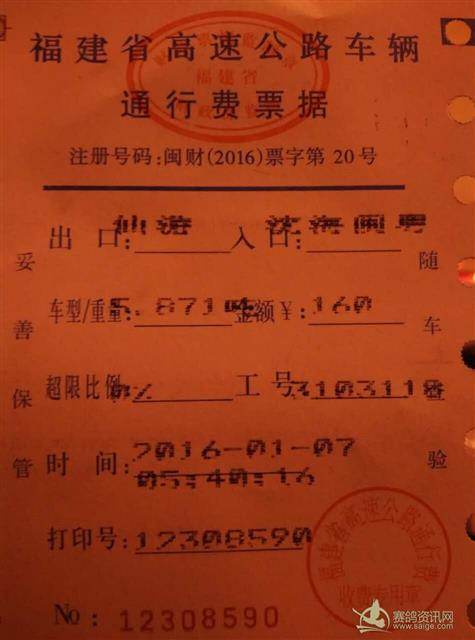 福建省高速公路车辆
通行费票据
福建省
注册号码:闽财(2016)票字第20号
出口:仙游 入口:沈海闽粤
车型/重量:5.871 金额¥:160
超限比例:0% 工号:3103118
时间:2016-01-07
05:40:16
打印号:12308590
No: 12308590
妥善保管
随车查验
福建省高速公路通行费
收费专用章
赛鸽资讯网
www.saige.com